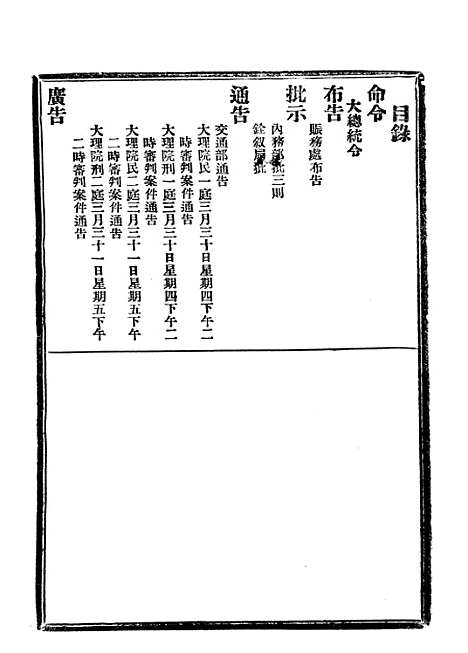 目錄
命令
大總統令
布告
賑務處布告
批示
內務部批三則
銓叙局批
通告
交通部通告
大理院民一庭三月三十日星期四下午二
時審判案件通告
大理院刑一庭三月三十日星期四下午二
時審判案件通告
大理院民二庭三月三十一日星期五下午
二時審判案件通告
大理院刑二庭三月三十一日星期五下午
二時審判案件通告
廣告